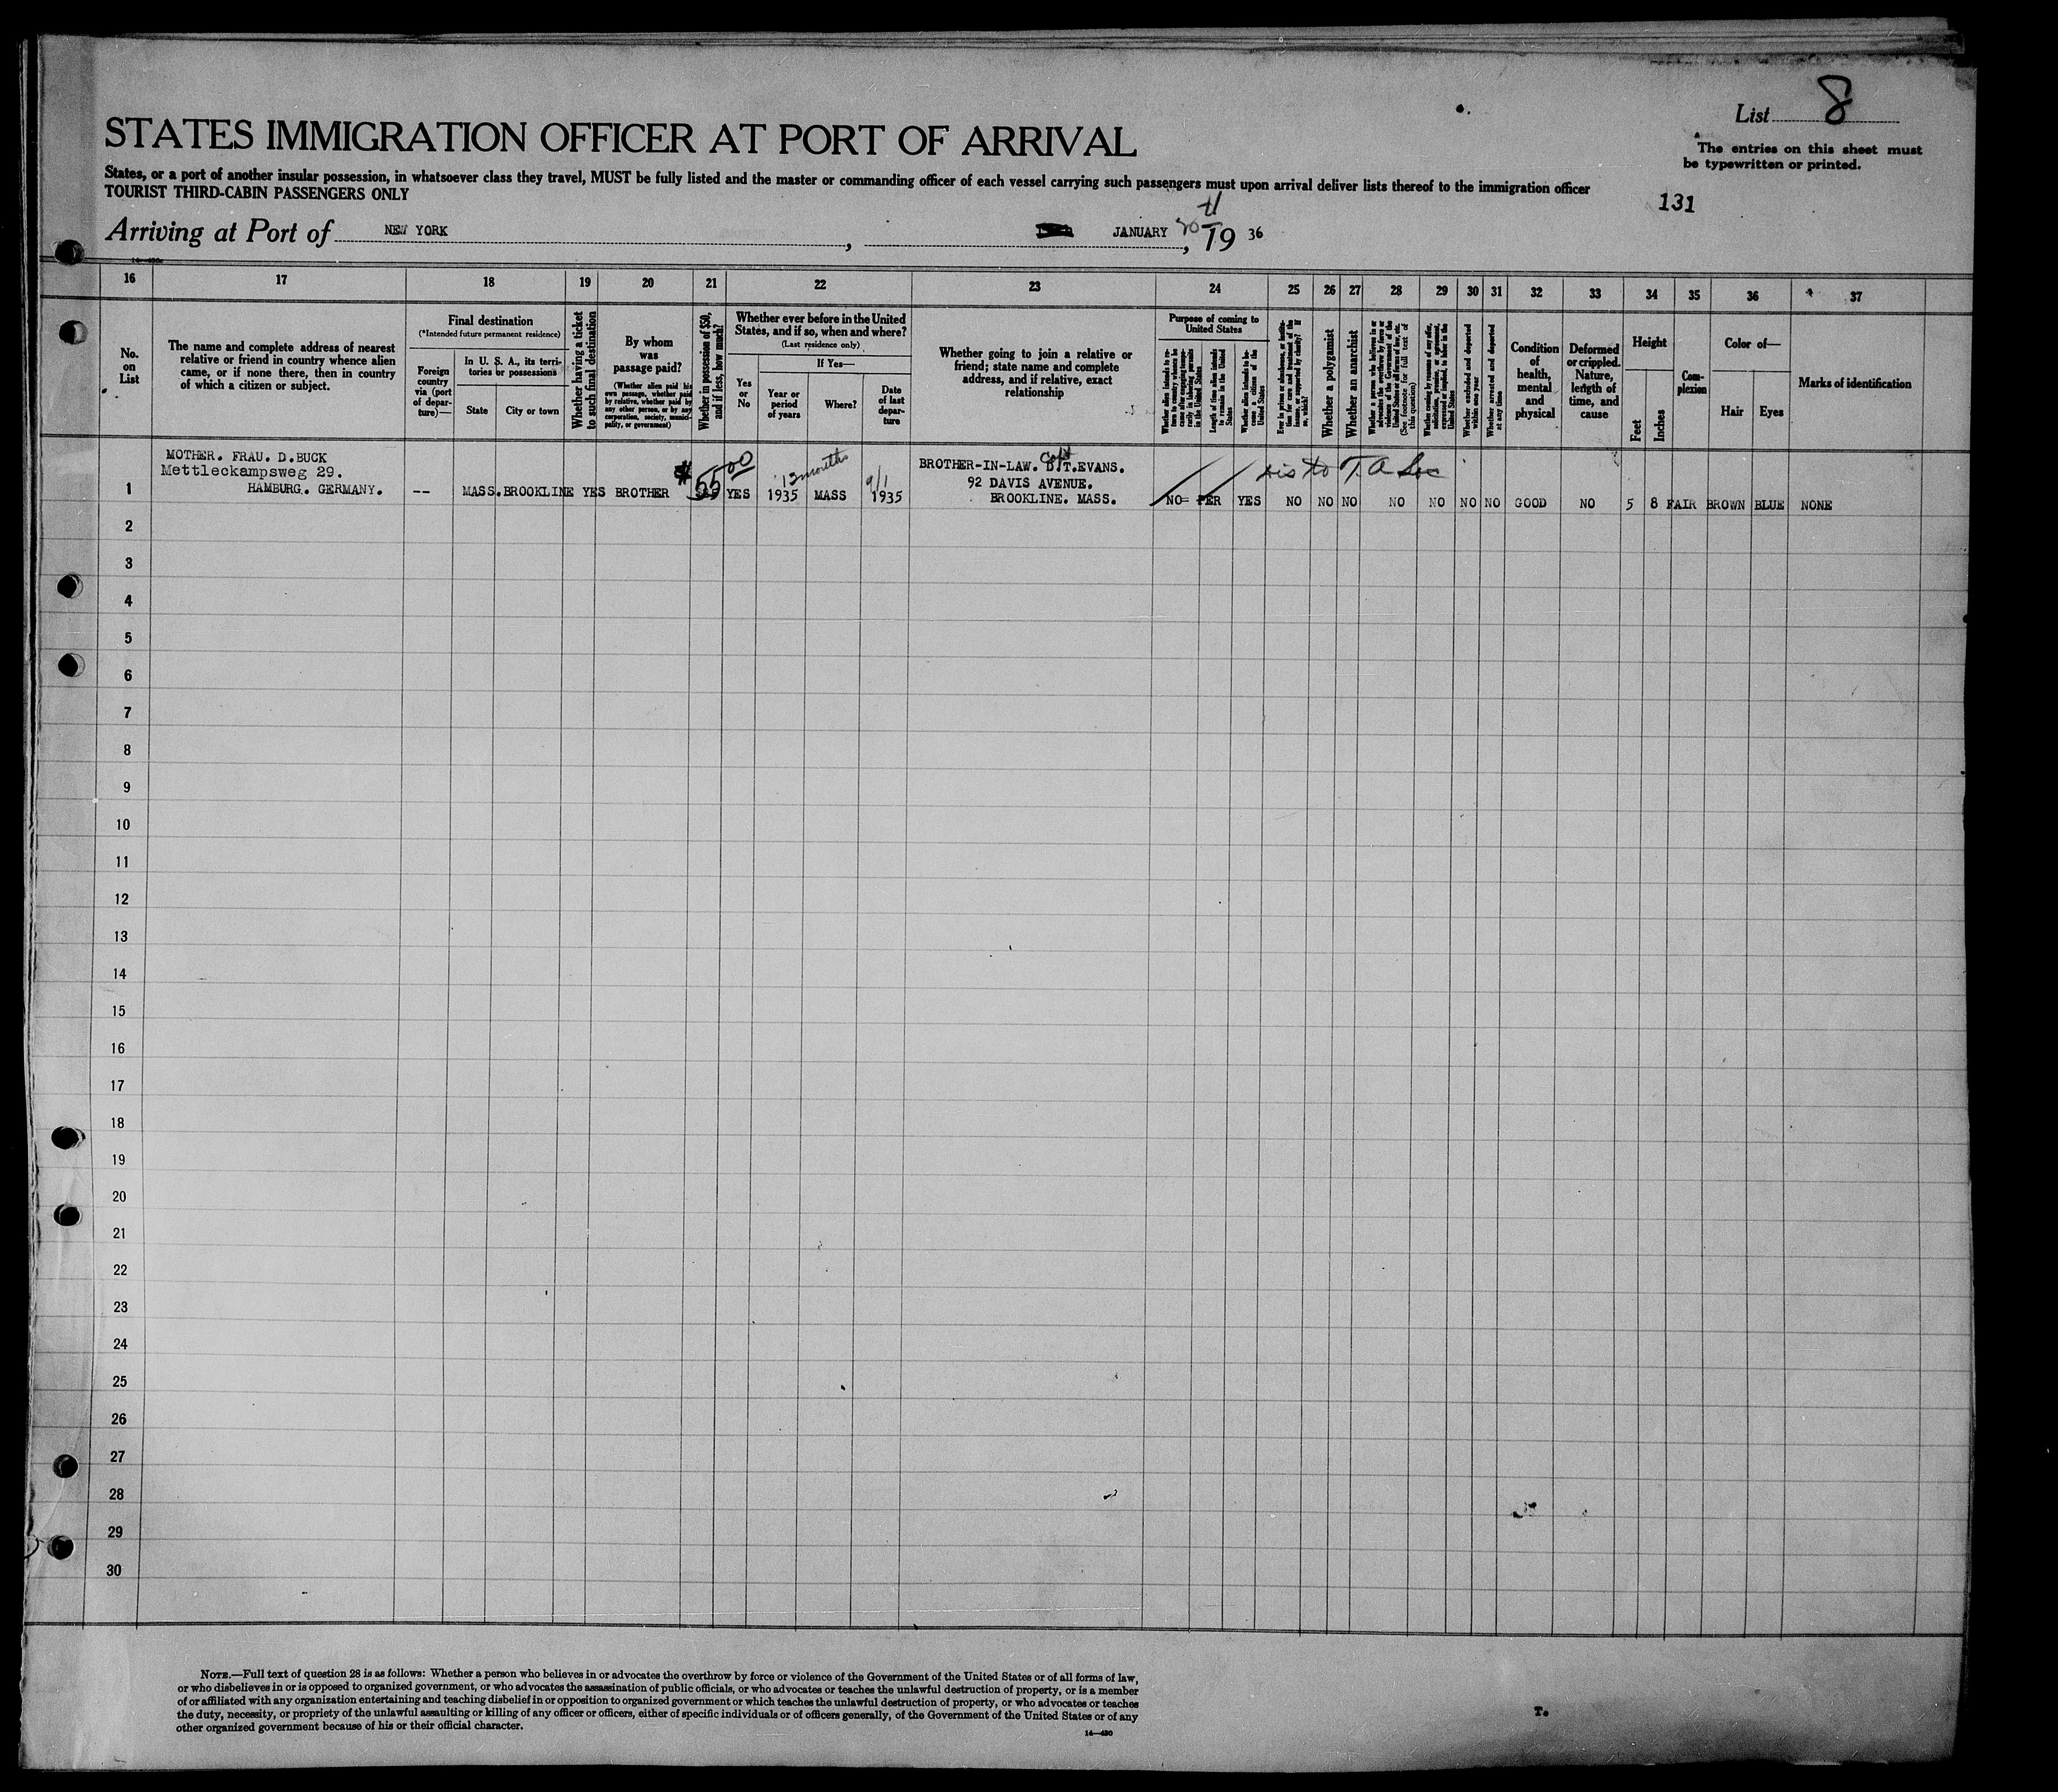 List 8
STATES IMMIGRATION OFFICER AT PORT OF ARRIVAL
The entries on this sheet must
be typewritten or printed.
States, or a port of another insular possession, in whatsoever class they travel, MUST be fully listed and the master or commanding officer of each vessel carrying such passengers must upon arrival deliver lists thereof to the immigration officer
TOURIST THIRD-CABIN PASSENGERS ONLY
131
Arriving at Port of NEW YORK, JANUARY 20, 19 36
16 17 18 19 20 21 22 23 24 25 26 27 28 29 30 31 32 33 34 35 36 37
No.
on
List
The name and complete address of nearest
relative or friend in country whence alien
came, or if none there, then in country
of which a citizen or subject.
Final destination
(*Intended future permanent residence)
Foreign
country
via (port
of depar-
ture)—
In U. S. A., its terri-
tories or possessions
State
City or town
Whether having a ticket
to such final destination
By whom
was
passage paid?
(Whether alien paid his
own passage, whether paid
by relative, whether paid by
any other person, or by any
corporation, society, munici-
pality, or government)
Whether in possession of $50,
and if less, how much?
Whether ever before in the United
States, and if so, when and where?
(Last residence only)
Yes
or
No
If Yes—
Year or
period
of years
Where?
Date
of last
depar-
ture
Whether going to join a relative or
friend; state name and complete
address, and if relative, exact
relationship
Purpose of coming to
United States
Length of time alien intends
to remain in the United
States
Whether alien intends to be-
come a citizen of the
United States
Whether a polygamist
Whether an anarchist
(See footnote for full text of
this question)
Whether excluded and deported
within one year
Whether arrested and deported
at any time
Condition
of
health,
mental
and
physical
Deformed
or crippled.
Nature,
length of
time, and
cause
Height
Feet
Inches
Com-
plexion
Color of—
Hair
Eyes
Marks of identification
MOTHER. FRAU. D.BUCK
Mettleckampsweg 29.
HAMBURG. GERMANY.
1 -- MASS. BROOKLINE YES BROTHER $ 55 00 YES 12 months 1935 MASS 9/1 1935
BROTHER-IN-LAW. Capt D.T.EVANS.
92 DAVIS AVENUE.
BROOKLINE. MASS.
NO PER YES NO NO NO NO NO NO NO GOOD NO 5 8 FAIR BROWN BLUE NONE
2
3
4
5
6
7
8
9
10
11
12
13
14
15
16
17
18
19
20
21
22
23
24
25
26
27
28
29
30
NOTE.—Full text of question 28 is as follows: Whether a person who believes in or advocates the overthrow by force or violence of the Government of the United States or of all forms of law,
or who disbelieves in or is opposed to organized government, or who advocates the assassination of public officials, or who advocates or teaches the unlawful destruction of property, or is a member
of or affiliated with any organization entertaining and teaching disbelief in or opposition to organized government or which teaches the unlawful destruction of property, or who advocates or teaches
the duty, necessity, or propriety of the unlawful assaulting or killing of any officer or officers, either of specific individuals or of officers generally, of the Government of the United States or of any
other organized government because of his or their official character.
14—480
T.